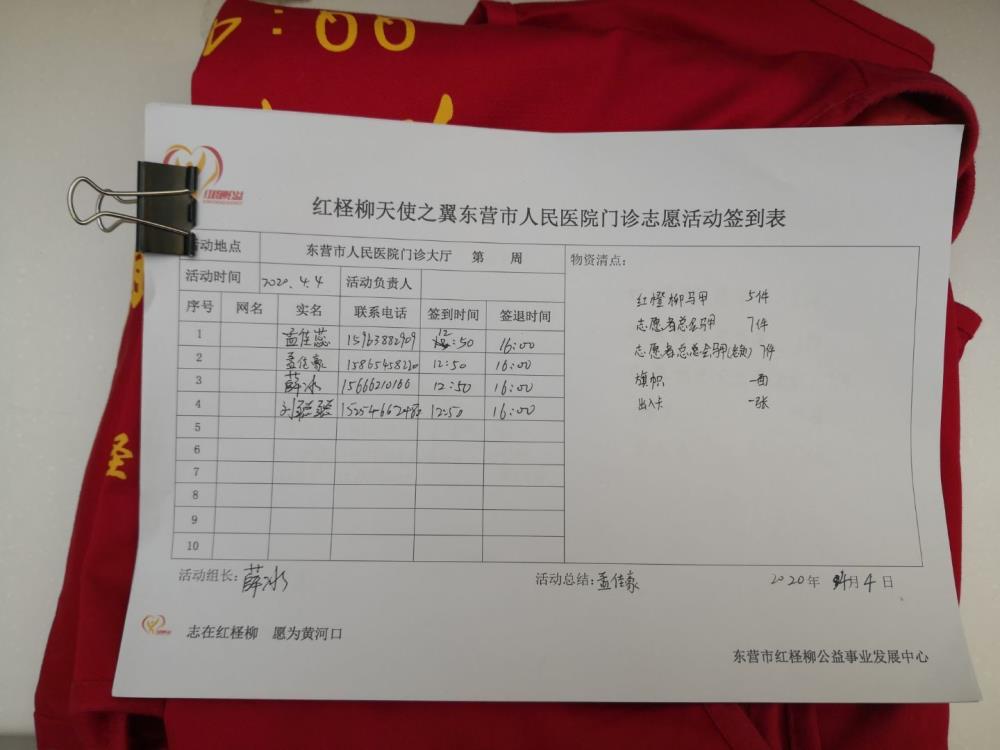 :00
红柽柳天使之翼东营市人民医院门诊志愿活动签到表
活动地点 东营市人民医院门诊大厅 第 周 物资清点:
活动时间 2020.4.4 活动负责人
序号 网名 实名 联系电话 签到时间 签退时间
1 孟佳蕊 15963882909 12:50 16:00
2 孟佳豪 15865458220 12:50 16:00
3 薛冰 15666210166 12:50 16:00
4 刘 12:50 16:00
5
6
7
8
9
10
红橙柳马甲 5件
志愿者总会马甲 7件
志愿者总会马甲 7件
旗帜 一面
出入卡 一张
活动组长:薛冰 活动总结:孟佳豪 2020年 4月4日
志在红柽柳 愿为黄河口
东营市红柽柳公益事业发展中心